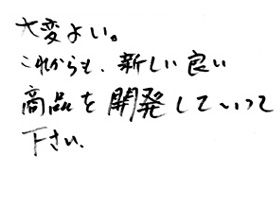 大変よい。
これからも、新しい良い
商品を開発していって
下さい.